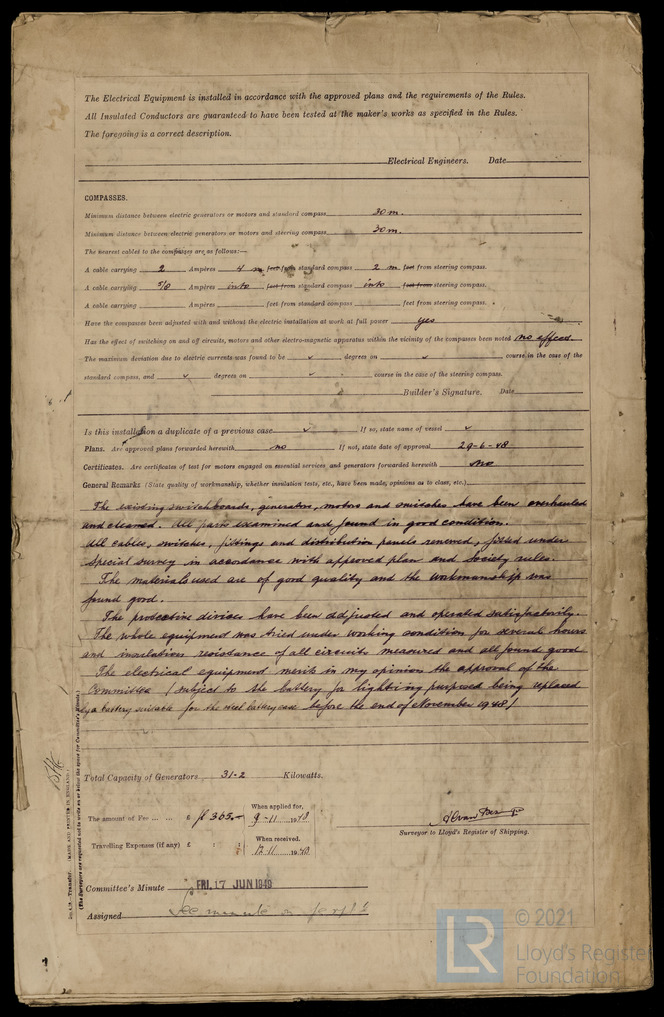 The Electrical Equipment is installed in accordance with the approved plans and the requirements of the Rules.
All Insulated Conductors are guaranteed to have been tested at the maker's works as specified in the Rules.
The foregoing is a correct description.
Electrical Engineers. Date
COMPASSES.
Minimum distance between electric generators or motors and standard compass 30 m.
Minimum distance between electric generators or motors and steering compass 30 m.
The nearest cables to the compasses are as follows:—
A cable carrying 2 Ampères 4 m feet from standard compass 2 m. feet from steering compass.
A cable carrying 5/8 Ampères into feet from standard compass into feet from steering compass.
A cable carrying Ampères feet from standard compass feet from steering compass.
Have the compasses been adjusted with and without the electric installation at work at full power yes
Has the effect of switching on and off circuits, motors and other electro-magnetic apparatus within the vicinity of the compasses been noted no effect.
The maximum deviation due to electric currents was found to be ✓ degrees on ✓ course in the case of the
standard compass, and ✓ degrees on ✓ course in the case of the steering compass.
Builder's Signature. Date
Is this installation a duplicate of a previous case ✓ If so, state name of vessel ✓
Plans. Are approved plans forwarded herewith no If not, state date of approval 29-6-48
Certificates. Are certificates of test for motors engaged on essential services and generators forwarded herewith no
General Remarks (State quality of workmanship, whether insulation tests, etc., have been made, opinions as to class, etc.)
The existing switchboards, generators, motors and switches have been overhauled
and cleaned. All parts examined and found in good condition.
All cables, switches, fittings and distribution panels renewed, fitted under
Special survey in accordance with approved plan and Society rules.
The materials used are of good quality and the workmanship was
found good.
The protective divices have been adjusted and operated satisfactorily.
The whole equipment was tried under working condition for several hours
and insulation resistance of all circuits measured and all found good
The electrical equipment merits in my opinion the approval of the
Committee (subject to the battery for lightning purposed being replaced
by a battery suitable for the steel battery case before the end of November 1948)
Total Capacity of Generators 31.2 Kilowatts.
The amount of Fee ... ... £ fl 365.— When applied for, 9-11 1948
Travelling Expenses (if any) £ : : When received. 12.11 1948
Surveyor to Lloyd's Register of Shipping.
Committee's Minute FRI. 17 JUN 1949
Assigned See minute on
(The Surveyors are requested not to write on or below the space for Committee's Minute.)
Transfer. (MADE AND PRINTED IN ENGLAND)
LR
© 2021
Lloyd's Register
Foundation